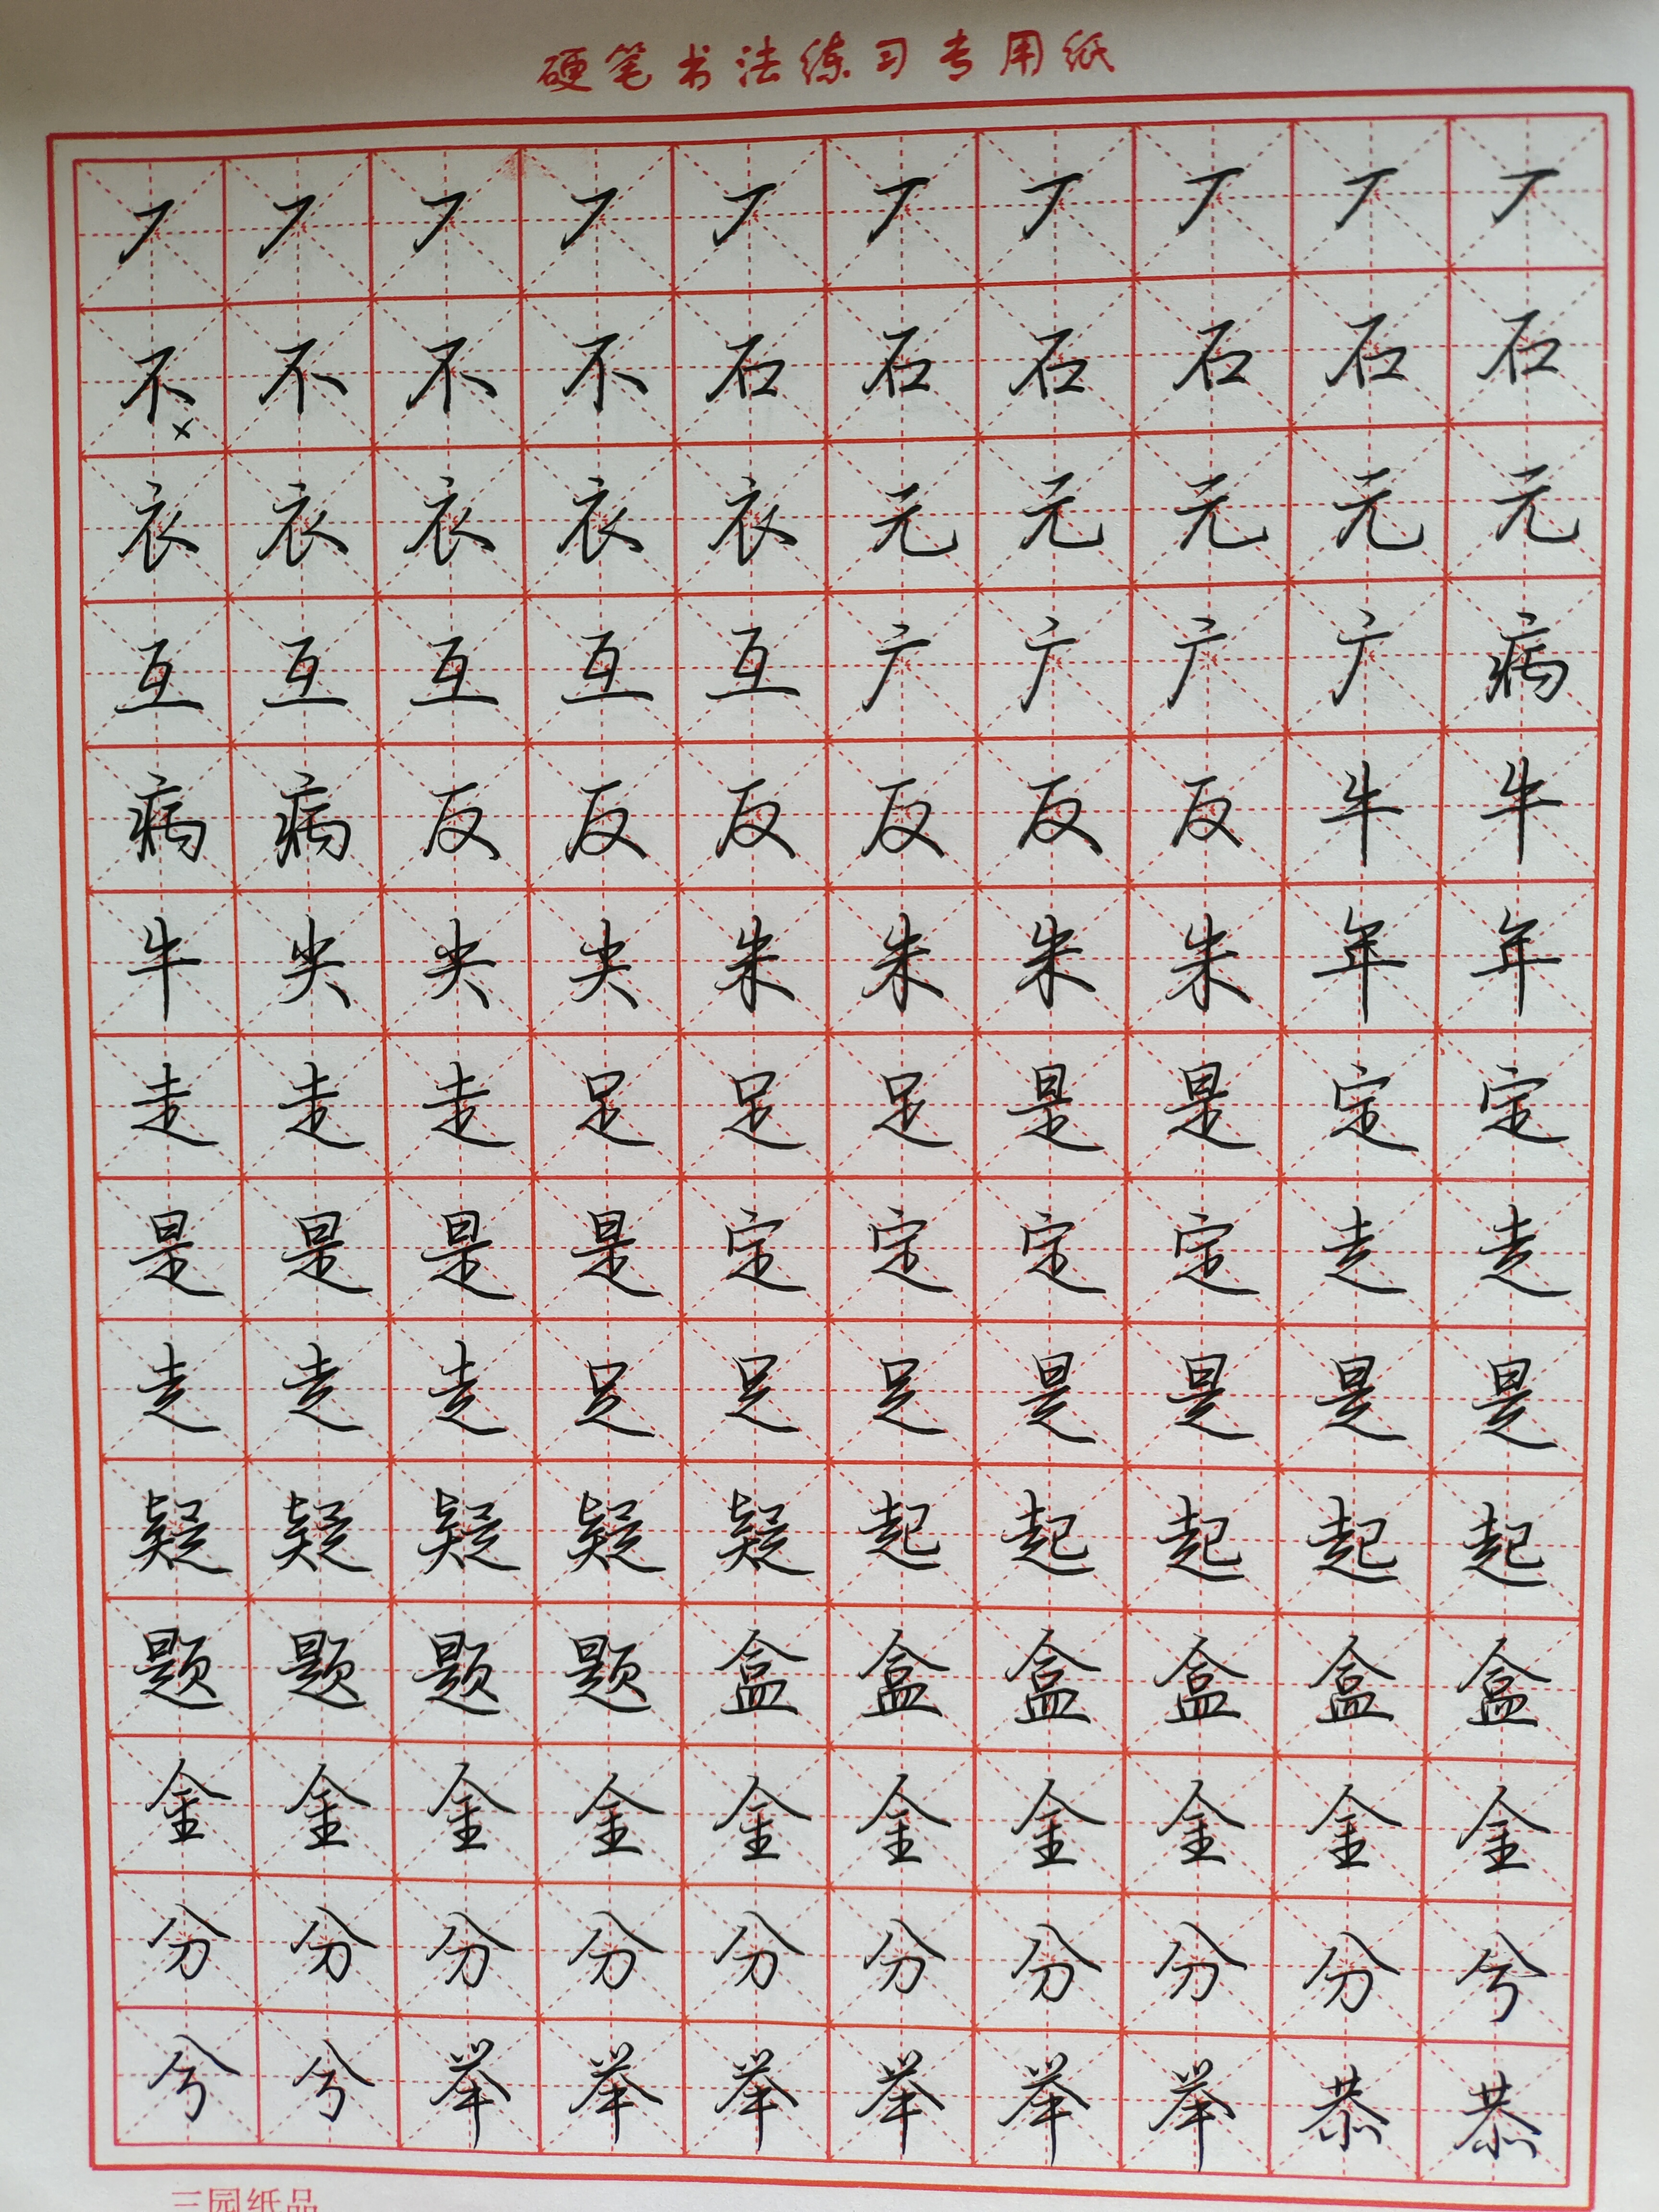 硬笔书法练习专用纸
丆丆丆丆丆丆丆丆丆丆
不不不不石石石石石石
×
衣衣衣衣衣元元元元元
互互互互互广广广广病
病病反反反反反反牛牛
牛尖尖尖朱朱朱朱年年
走走走足足足是是定定
是是是是定定定定走走
走走走足足足是是是是
疑疑疑疑疑起起起起起
题题题题盒盒盒盒盒盒
金金金金金金金金金金
分分分分分分分分分兮
兮兮举举举举举举恭恭
三园纸品